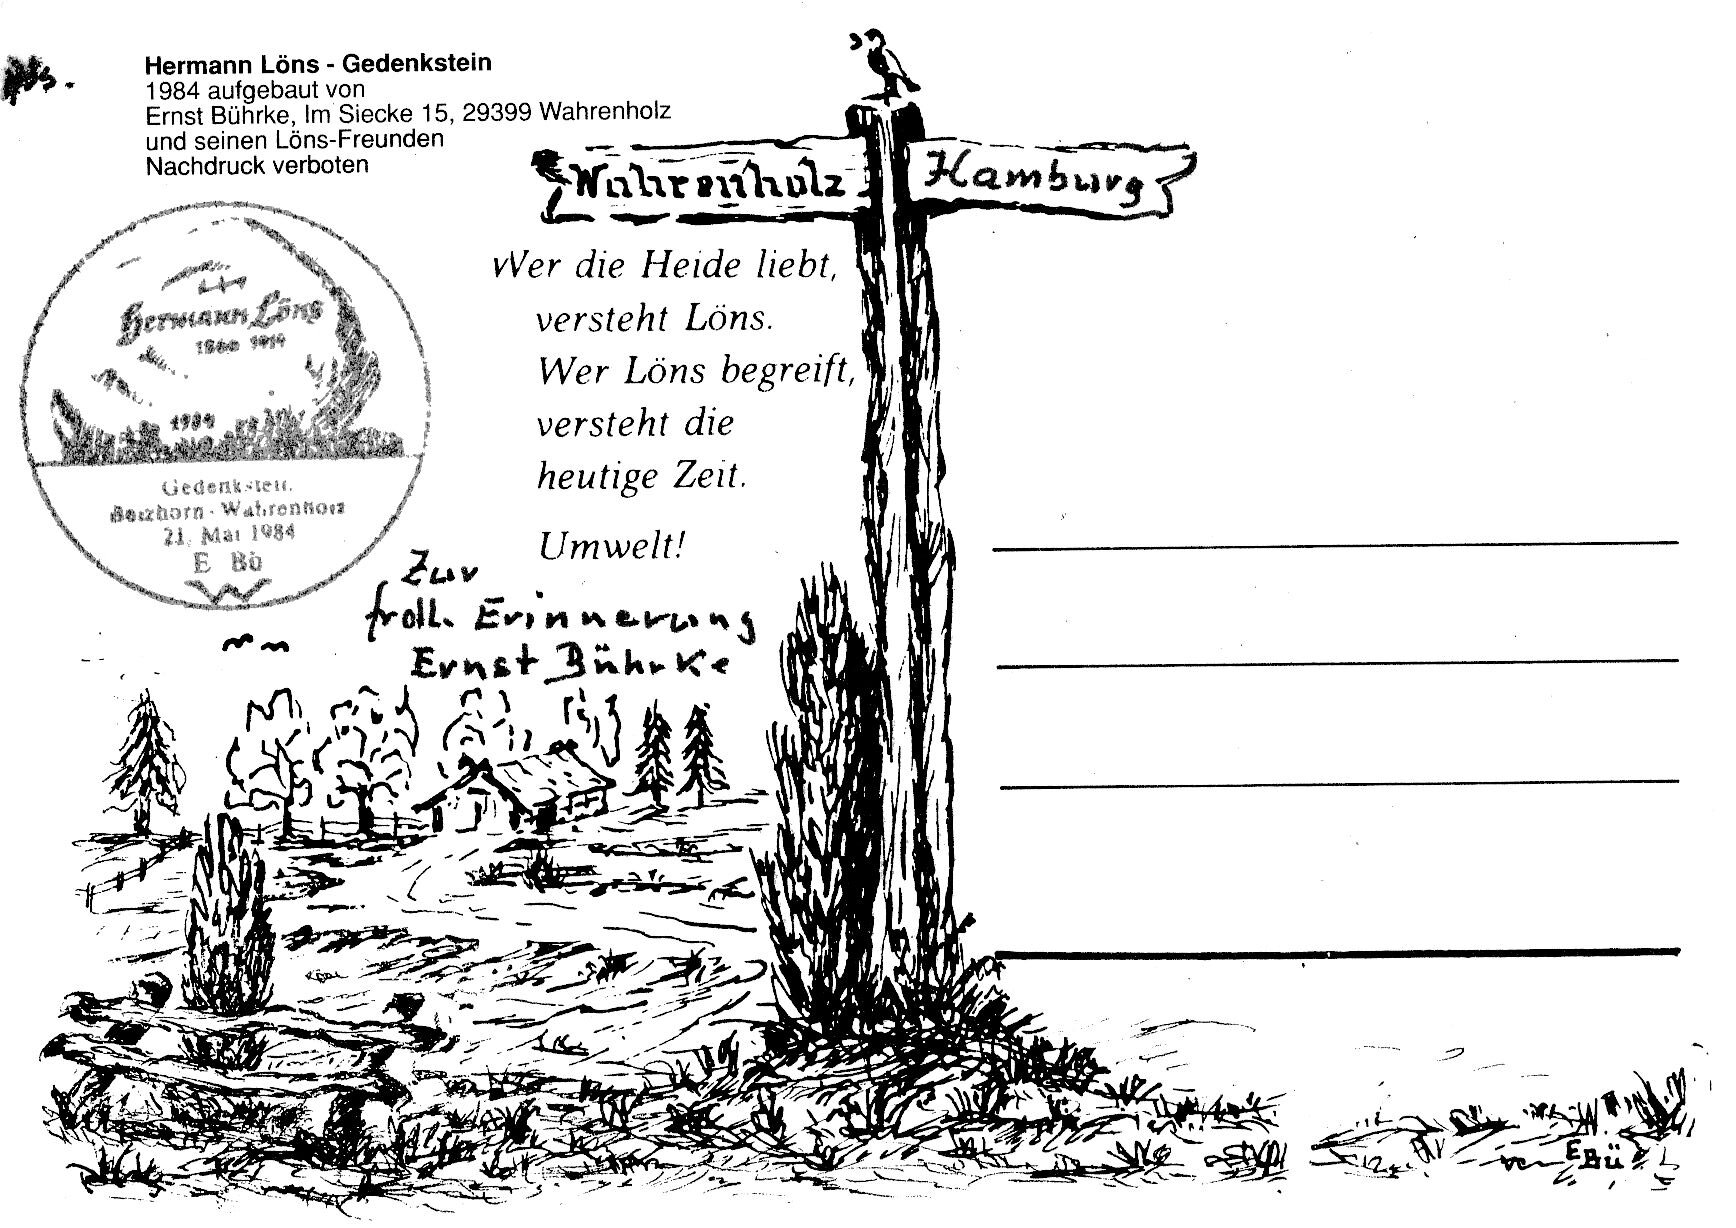 Hermann Löns - Gedenkstein
1984 aufgebaut von
Ernst Bührke, Im Siecke 15, 29399 Wahrenholz
und seinen Löns-Freunden
Nachdruck verboten
Wahrenholz
Hamburg
Hermann Löns
1866 1914
1984
Gedenkstein
Betzhorn - Wahrenholz
21. Mai 1984
E Bü
W
Wer die Heide liebt,
versteht Löns.
Wer Löns begreift,
versteht die
heutige Zeit.
Umwelt!
Zur
frdl. Erinnerung
Ernst Bührke
EBü